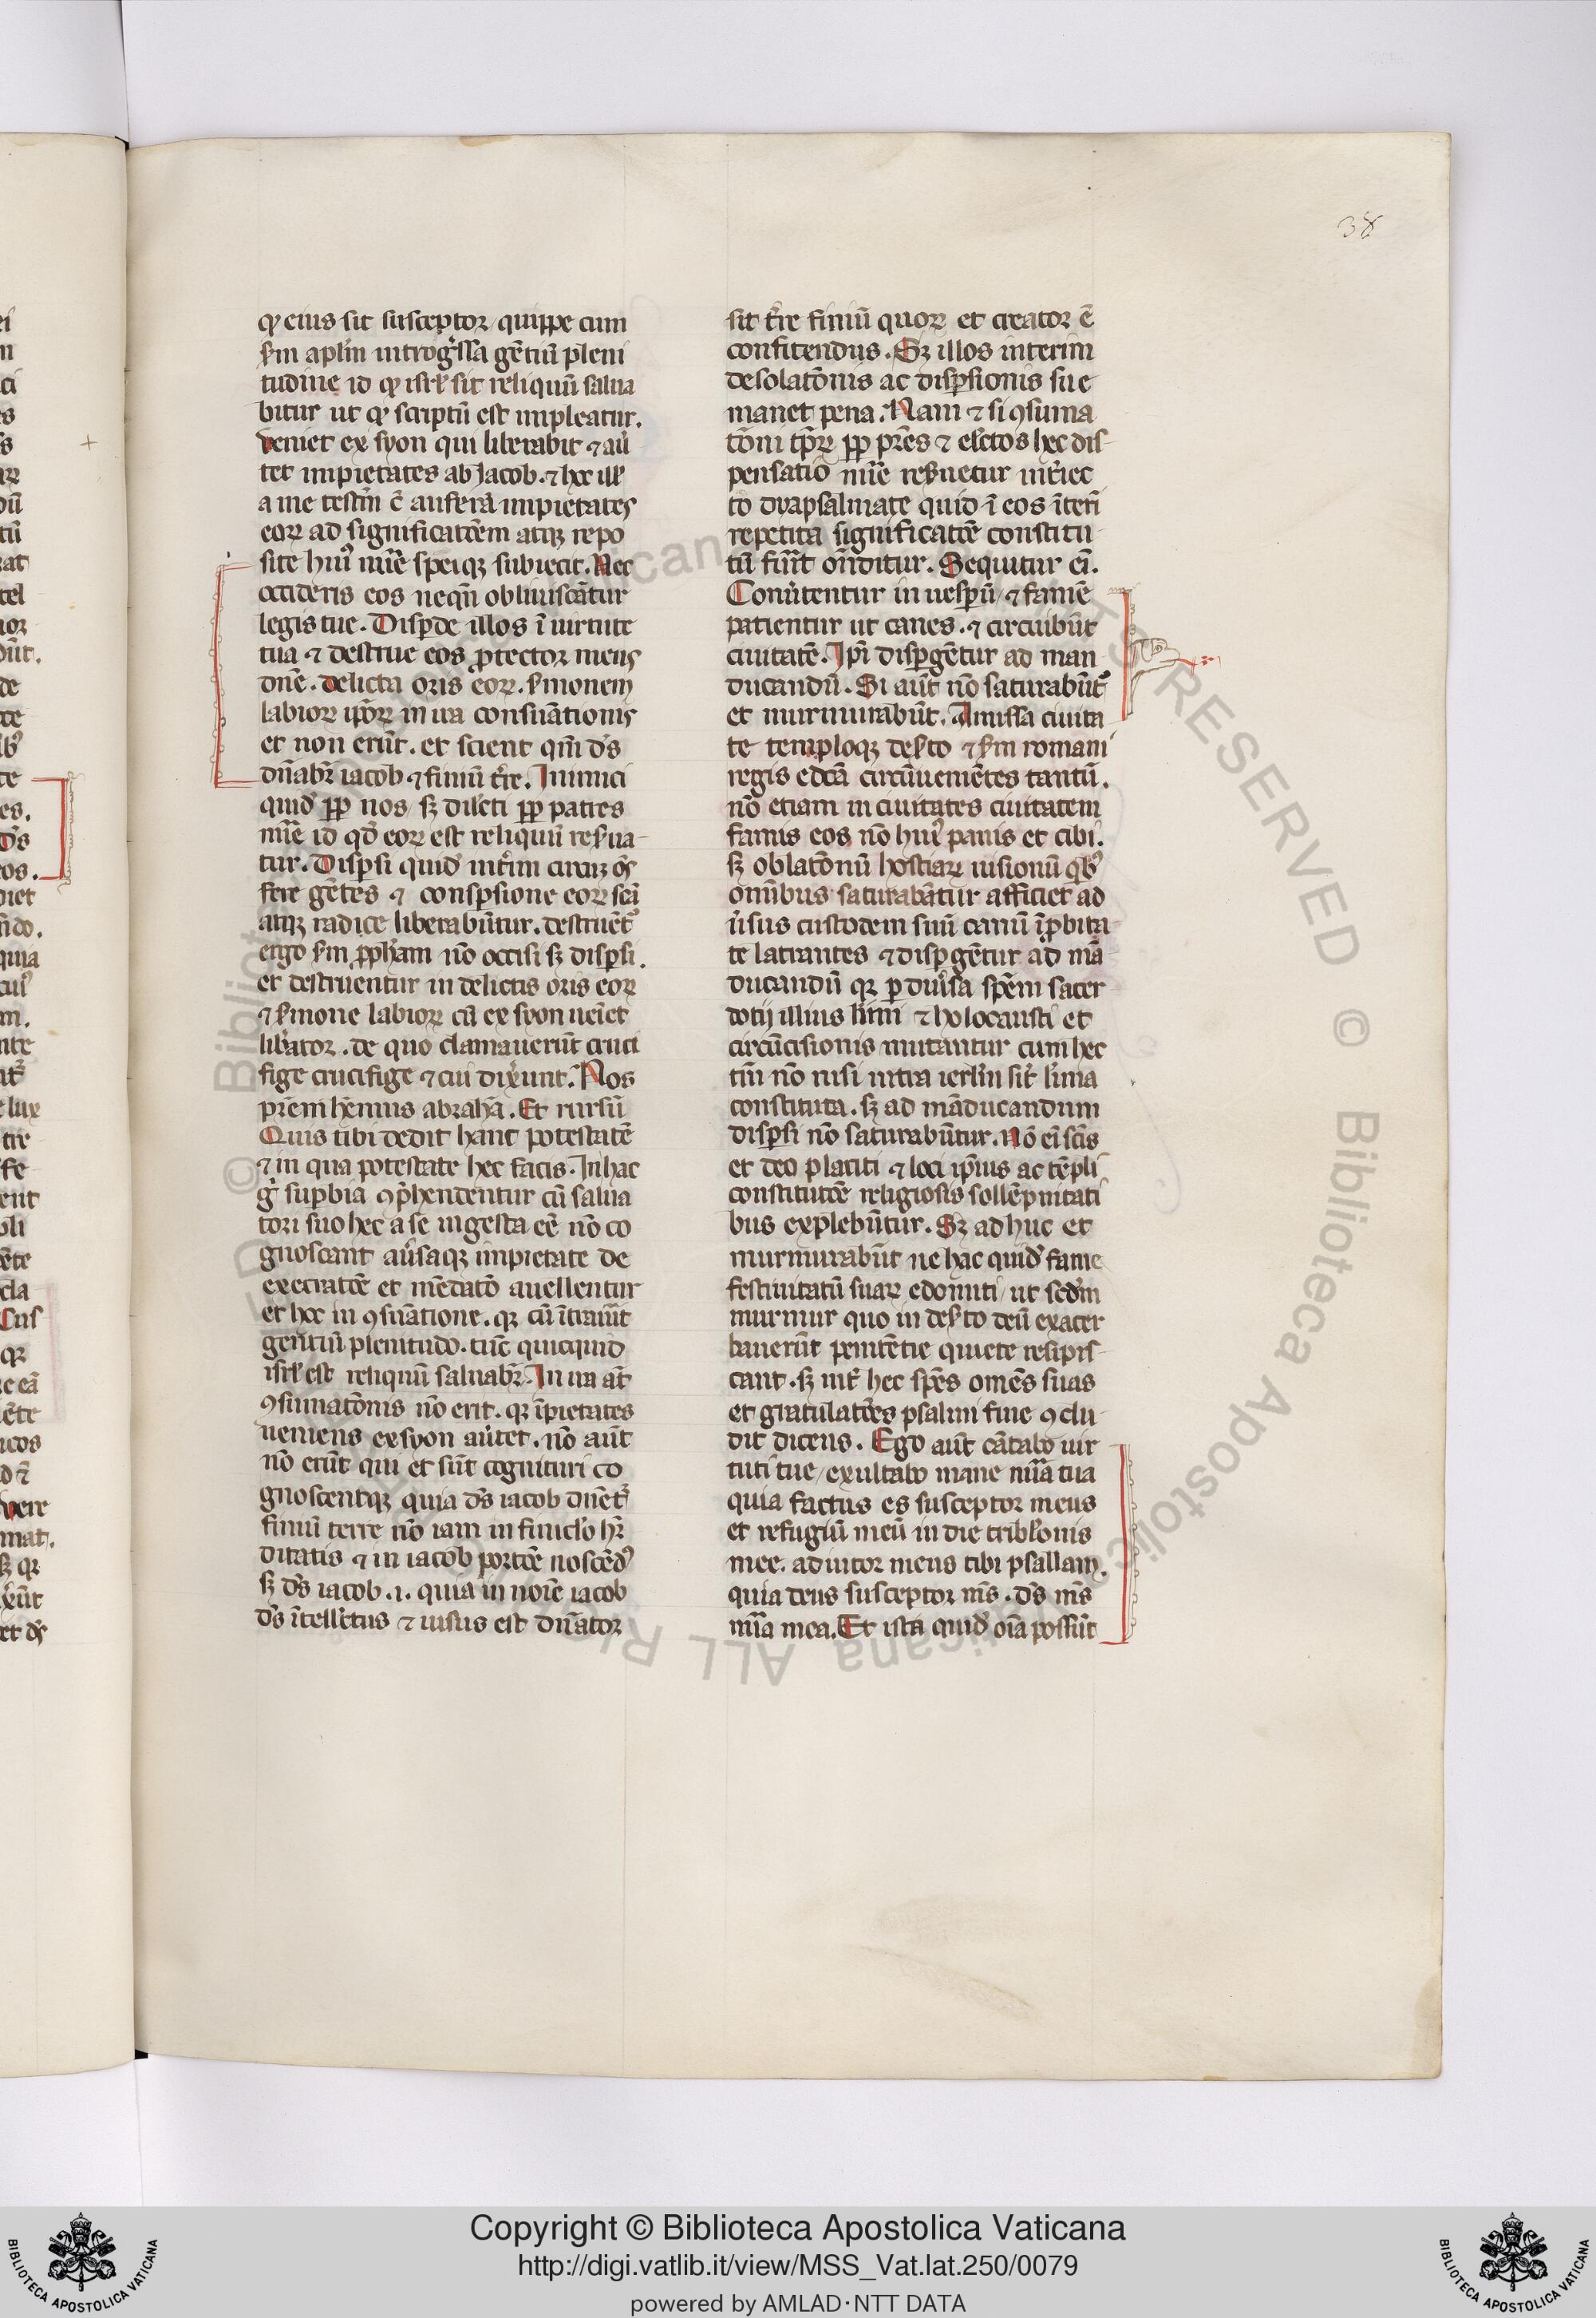 38
qͥ eius sit susceptor / quippe cum
scͫm aplm̄ introgͥssa gētiū pleni
tudine id qͥ isrl̄ sit reliquū salua
bitur ut qͥ scriptū est impleatur.
veniet ex syon qui liberabit ⁊ au̾
tet impietates ab Jacob. ⁊ hec ill̾
a me testm̄ ē auferā impietates
eoꝝ ad significatōem atqꝫ repo
site huiꝰ mīe speiqꝫ subiecit. Nec
occideris eos neqn̄ obliuiscātur
legis tue. Disp̱de illos ī uirtute
tua ⁊ destrue eos ꝓtector meus
dn̄e. delicta oris eoꝝ. s̾monem
labioꝝ ip̄oꝝ in ira consūationis
et non erūt. et scient qm̄ ds̄
dn̄abr̄ iacob ⁊ finiū t̾re. Inimici
quid̾ ꝓp nos / sꝫ dilc̄ti ꝓp patres
mīe id qd̾ eoꝝ est reliquū res̾ua-
tur. Disp̱si quid̾ int̾im circa oēs
fere gētes ⁊ consp̱sione eoꝝ scā
atqꝫ radice liberabūtur. destruēt᷑
ergo scͫm ꝓpham nō occisi sꝫ disp̱si.
et destruentur in delictis oris eoꝝ
⁊ s̾mone labioꝝ cū ex syon ueīet
lib̾ator. de quo clamauerūt cruci
fige crucifige ⁊ cui dix̾unt. Nos
prēm hēmus abrahā. Et rursū
Quis tibi dedit hanc potestatē
⁊ in qua potestate hec facis. In hac
gͥ sup̱bia ꝯp̄hendentur cū salua
tori suo hec a se ingesta eē nō co
gnoscant au̾saqꝫ impietate de
execratōe et mēdatō auellentur
et hec in ꝯsūatione. qꝛ cū ītrauīt
gentiū plenitudo. tūc quicquid
isrl̄ est reliquū saluabr̄. In ira at̄
ꝯsumatōnis nō erit. qꝛ īpietates
ueniens ex syon au̾tet. nō aūt
nō erūt qui et sūt cognituri co
gnoscentqꝫ quia ds̄ iacob dn̄et᷑
finiū terre nō iam in finiclo hr̄
ditatis ⁊ in iacob portōe noscēdꝰ
sꝫ ds̄ iacob .i. quia in noīe iacob
ds̄ ītellc̄tus ⁊ uisus est dn̄ator
sit t̾re finiū quoꝝ et creator ē
confitendus. Sꝫ illos interim
desolatōnis ac disp̱sionis sue
manet pena. Nam ⁊ si ꝯsuma
tōni tp̄ꝝ ꝓp pr̄es ⁊ elc̄tos hec dis-
pensatio mīe res̾uetur int̾iec
to dyapsalmate quid ī eos īterī
repetita significatōe constitu-
tū fu̾it on̄ditur. Sequitur eī.
Conu̾tentur in uesp̱ū ⁊ famē
patientur ut canes. ⁊ circuibūt
ciuitatē. Ip̄i disp̱gētur ad man
ducandū. Si aūt nō saturabūt᷑
et murmurabūt. Amissa ciuita
te temploqꝫ des̾to ⁊ scͫm romani
regis edcā circūuenientes tantū.
nō etiam in ciuitates ciuitatem
famis eos nō huiꝰ panis et cibi.
sꝫ oblatōnū hostiaꝝ uisionū qͥbꝰ
omībus saturabātur afficiet ad
u̾sus custodem suū canū īp̱bita
te latrantes ⁊ disp̱gētur ad mā
ducandū qꝛ p̱ diu̾sa sp̄em sacer
dotij illius līmi ⁊ holocausti et
circūcisionis mutantur cum hec
tm̄ nō nisi intra ierl̄m sit̄ l̾ima
constituta. sꝫ ad māducandum
disp̱si nō saturabūtur. Nō eī scīs
et deo placiti ⁊ loci ip̄ius ac tēpli
constitutōe religiosis sollēpnitati
bus explebūtur. Sꝫ adhuc et
murmurabūt ne hac quid̾ fame
festiuitatū suaꝝ edomiti / ut scd̾m
murmur quo in des̾to deū exacer
bauerūt penitētie quiete resipis-
cant. sꝫ int̾ hec sp̄es omēs suas
et gratulatōes psalmi fine ꝯclu-
dit dicens. Ego aūt cātabo uir
tuti tue / exultabo mane mīa tua
quia factus es susceptor meus
et refugiū meū in die tribl̾onis
mee. adiutor meus tibi psallam.
quia deus susceptor ms̄. ds̄ ms̄
mīa mea. Et ista quid̾ oīa possūt
© Biblioteca Apostolica Vaticana ALL RIGHTS RESERVED © Biblioteca Apostolica Vaticana ALL RIGHTS RESERVED
Copyright © Biblioteca Apostolica Vaticana
http://digi.vatlib.it/view/MSS_Vat.lat.250/0079
powered by AMLAD·NTT DATA
BIBLIOTECA APOSTOLICA VATICANA
BIBLIOTECA APOSTOLICA VATICANA